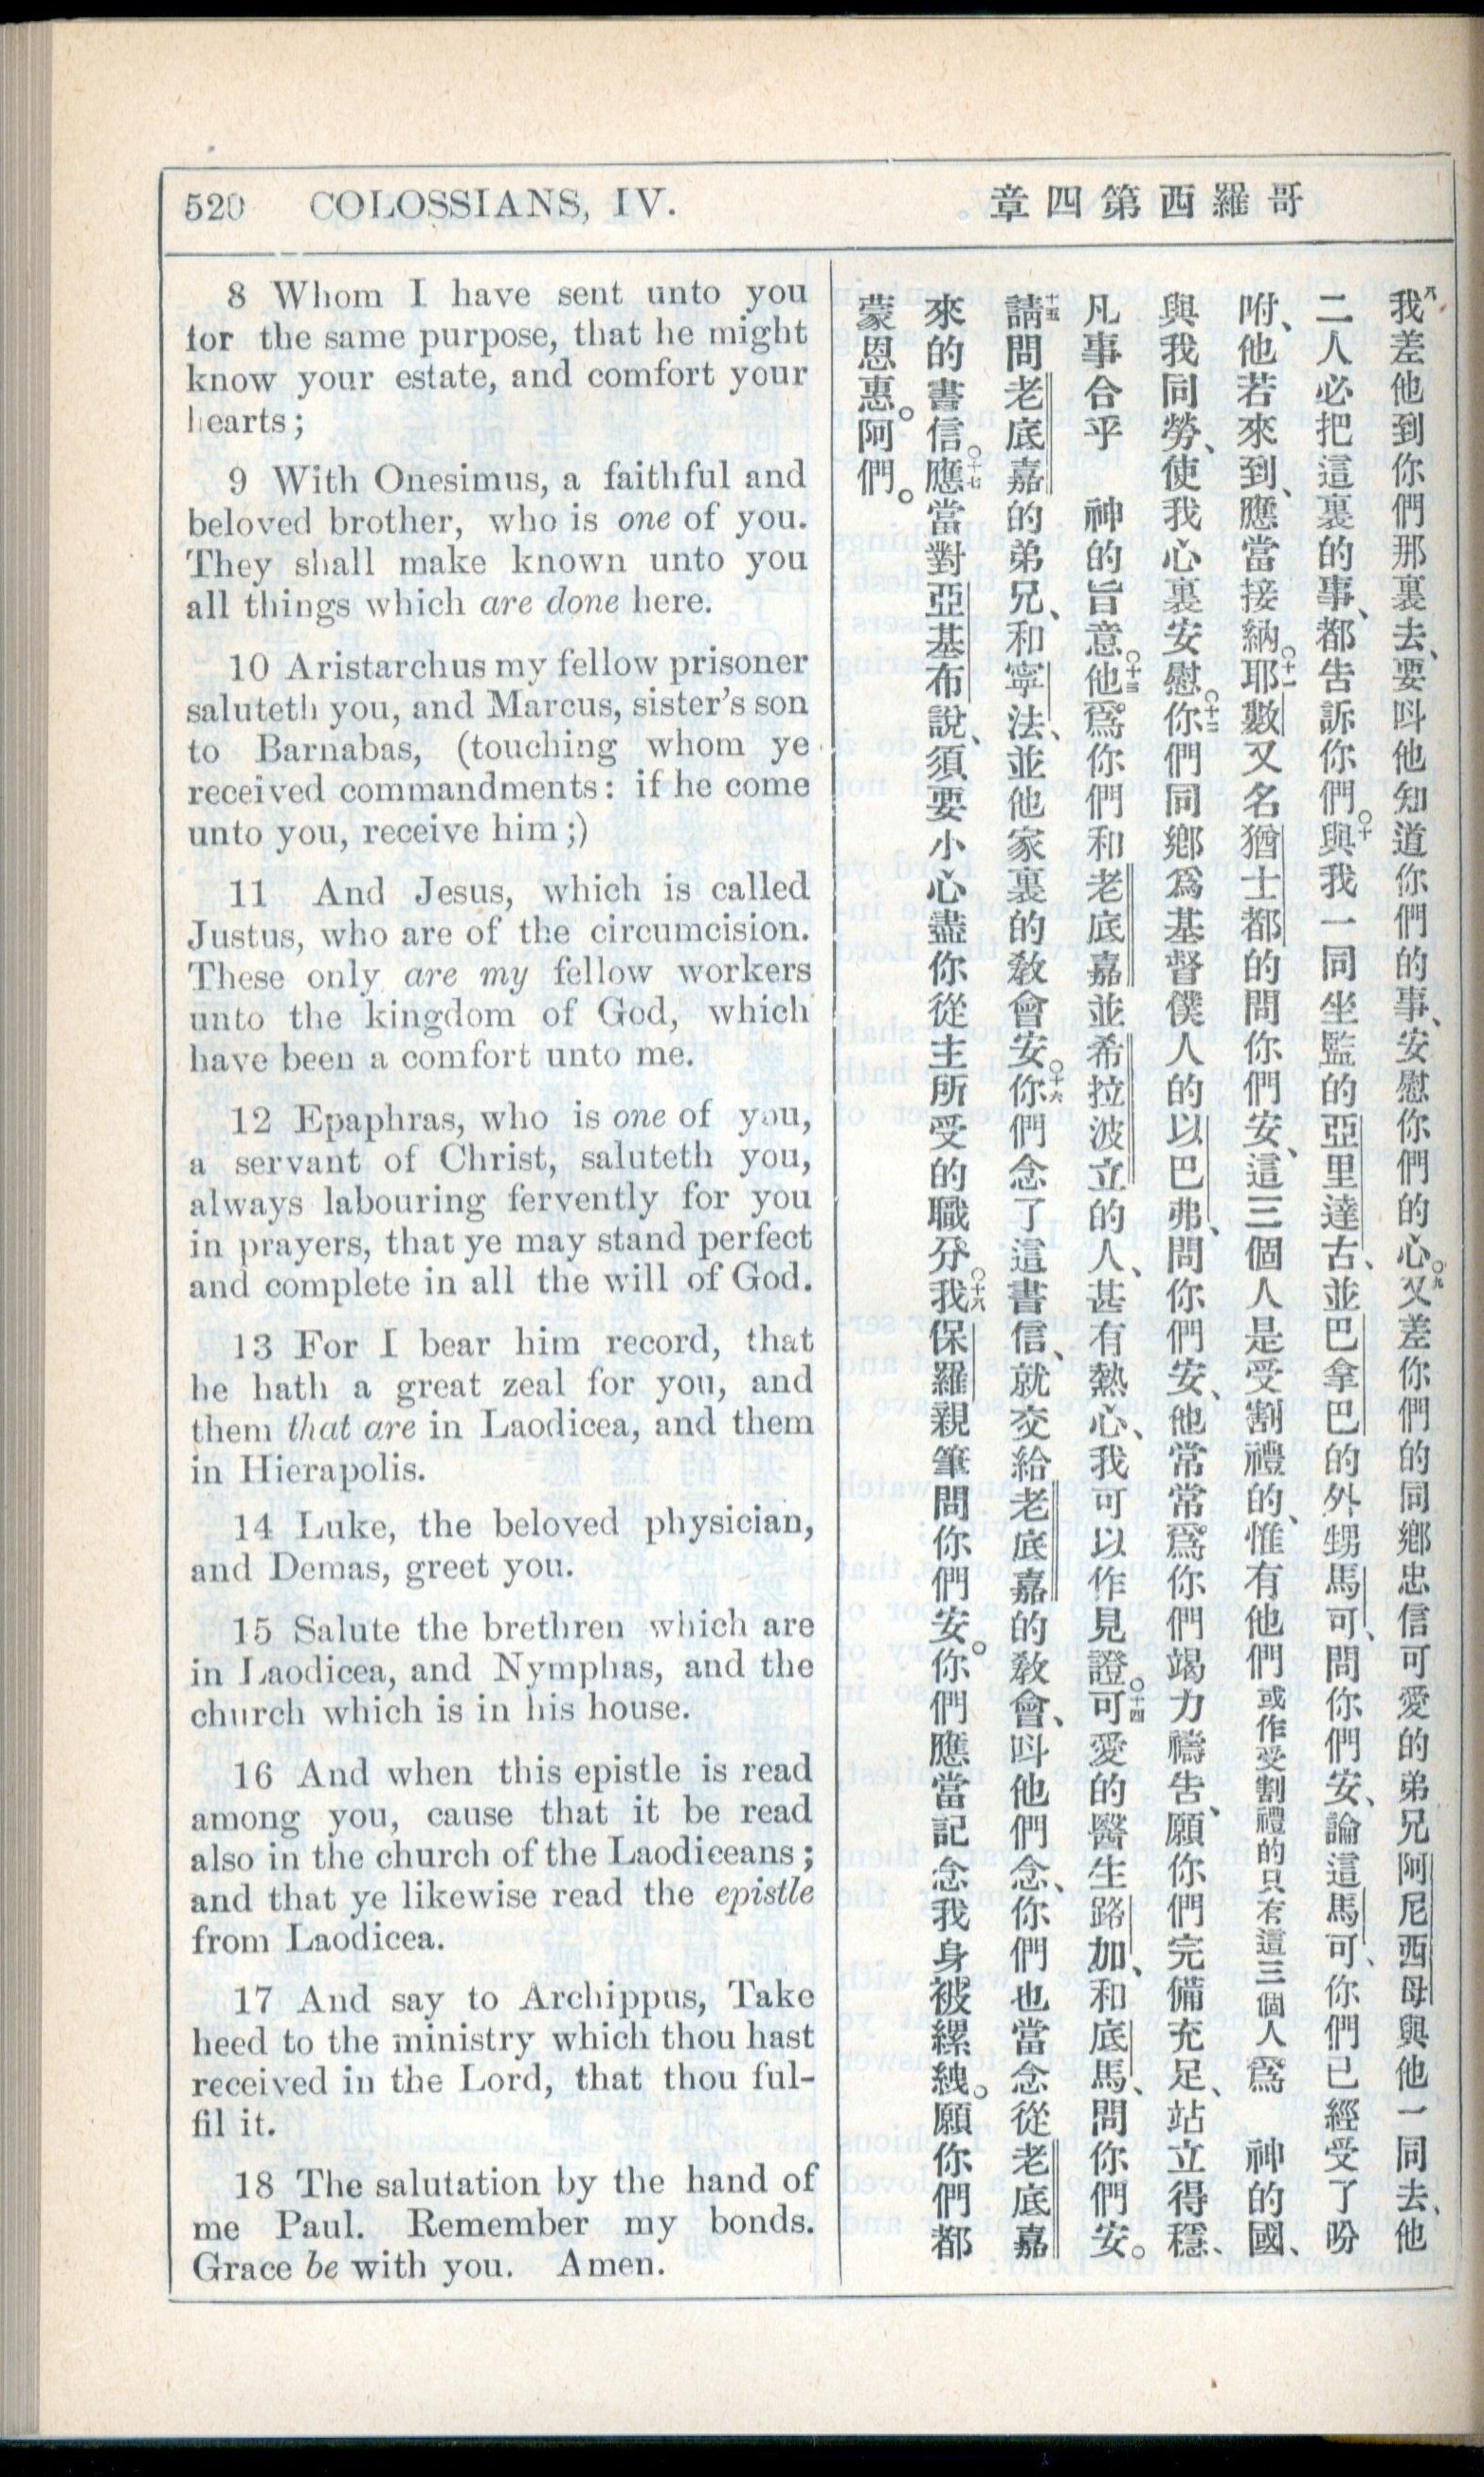 520 COLOSSIANS, IV.
章四第西羅哥
8 Whom I have sent unto you
for the same purpose, that he might
know your estate, and comfort your
hearts;
9 With Onesimus, a faithful and
beloved brother, who is one of you.
They shall make known unto you
all things which are done here.
10 Aristarchus my fellow prisoner
saluteth you, and Marcus, sister's son
to Barnabas, (touching whom ye
received commandments: if he come
unto you, receive him;)
11 And Jesus, which is called
Justus, who are of the circumcision.
These only are my fellow workers
unto the kingdom of God, which
have been a comfort unto me.
12 Epaphras, who is one of you,
a servant of Christ, saluteth you,
always labouring fervently for you
in prayers, that ye may stand perfect
and complete in all the will of God.
13 For I bear him record, that
he hath a great zeal for you, and
them that are in Laodicea, and them
in Hierapolis.
14 Luke, the beloved physician,
and Demas, greet you.
15 Salute the brethren which are
in Laodicea, and Nymphas, and the
church which is in his house.
16 And when this epistle is read
among you, cause that it be read
also in the church of the Laodiceans;
and that ye likewise read the epistle
from Laodicea.
17 And say to Archippus, Take
heed to the ministry which thou hast
received in the Lord, that thou ful-
fil it.
18 The salutation by the hand of
me Paul. Remember my bonds.
Grace be with you. Amen.
八我差他到你們那裏去、要呌他知道你們的事、安慰你們的心。○九又差你們的同鄉忠信可愛的弟兄阿尼西母與他一同去、他
二人必把這裏的事、都告訴你們。○十與我一同坐監的亞里達古、並巴拿巴的外甥馬可、問你們安、論這馬可、你們已經受了吩
咐、他若來到、應當接納。○十一耶數又名猶士都的問你們安、這三個人是受割禮的、惟有他們或作受割禮的只有這三個人爲 神的國、
與我同勞、使我心裏安慰。○十二你們同鄉爲基督僕人的以巴弗、問你們安、他常常爲你們竭力禱告、願你們完備充足、站立得穩、
凡事合乎 神的旨意。○十三他爲你們和老底嘉並希拉波立的人、甚有熱心、我可以作見證。○十四可愛的醫生路加、和底馬、問你們安。
十五請問老底嘉的弟兄、和寧法、並他家裏的敎會安。○十六你們念了這書信、就交給老底嘉的敎會、呌他們念、你們也當念從老底嘉
來的書信。○十七應當對亞基布說、須要小心盡你從主所受的職分。○十八我保羅親筆問你們安。你們應當記念我身被縲絏。願你們都
蒙恩惠。阿們。